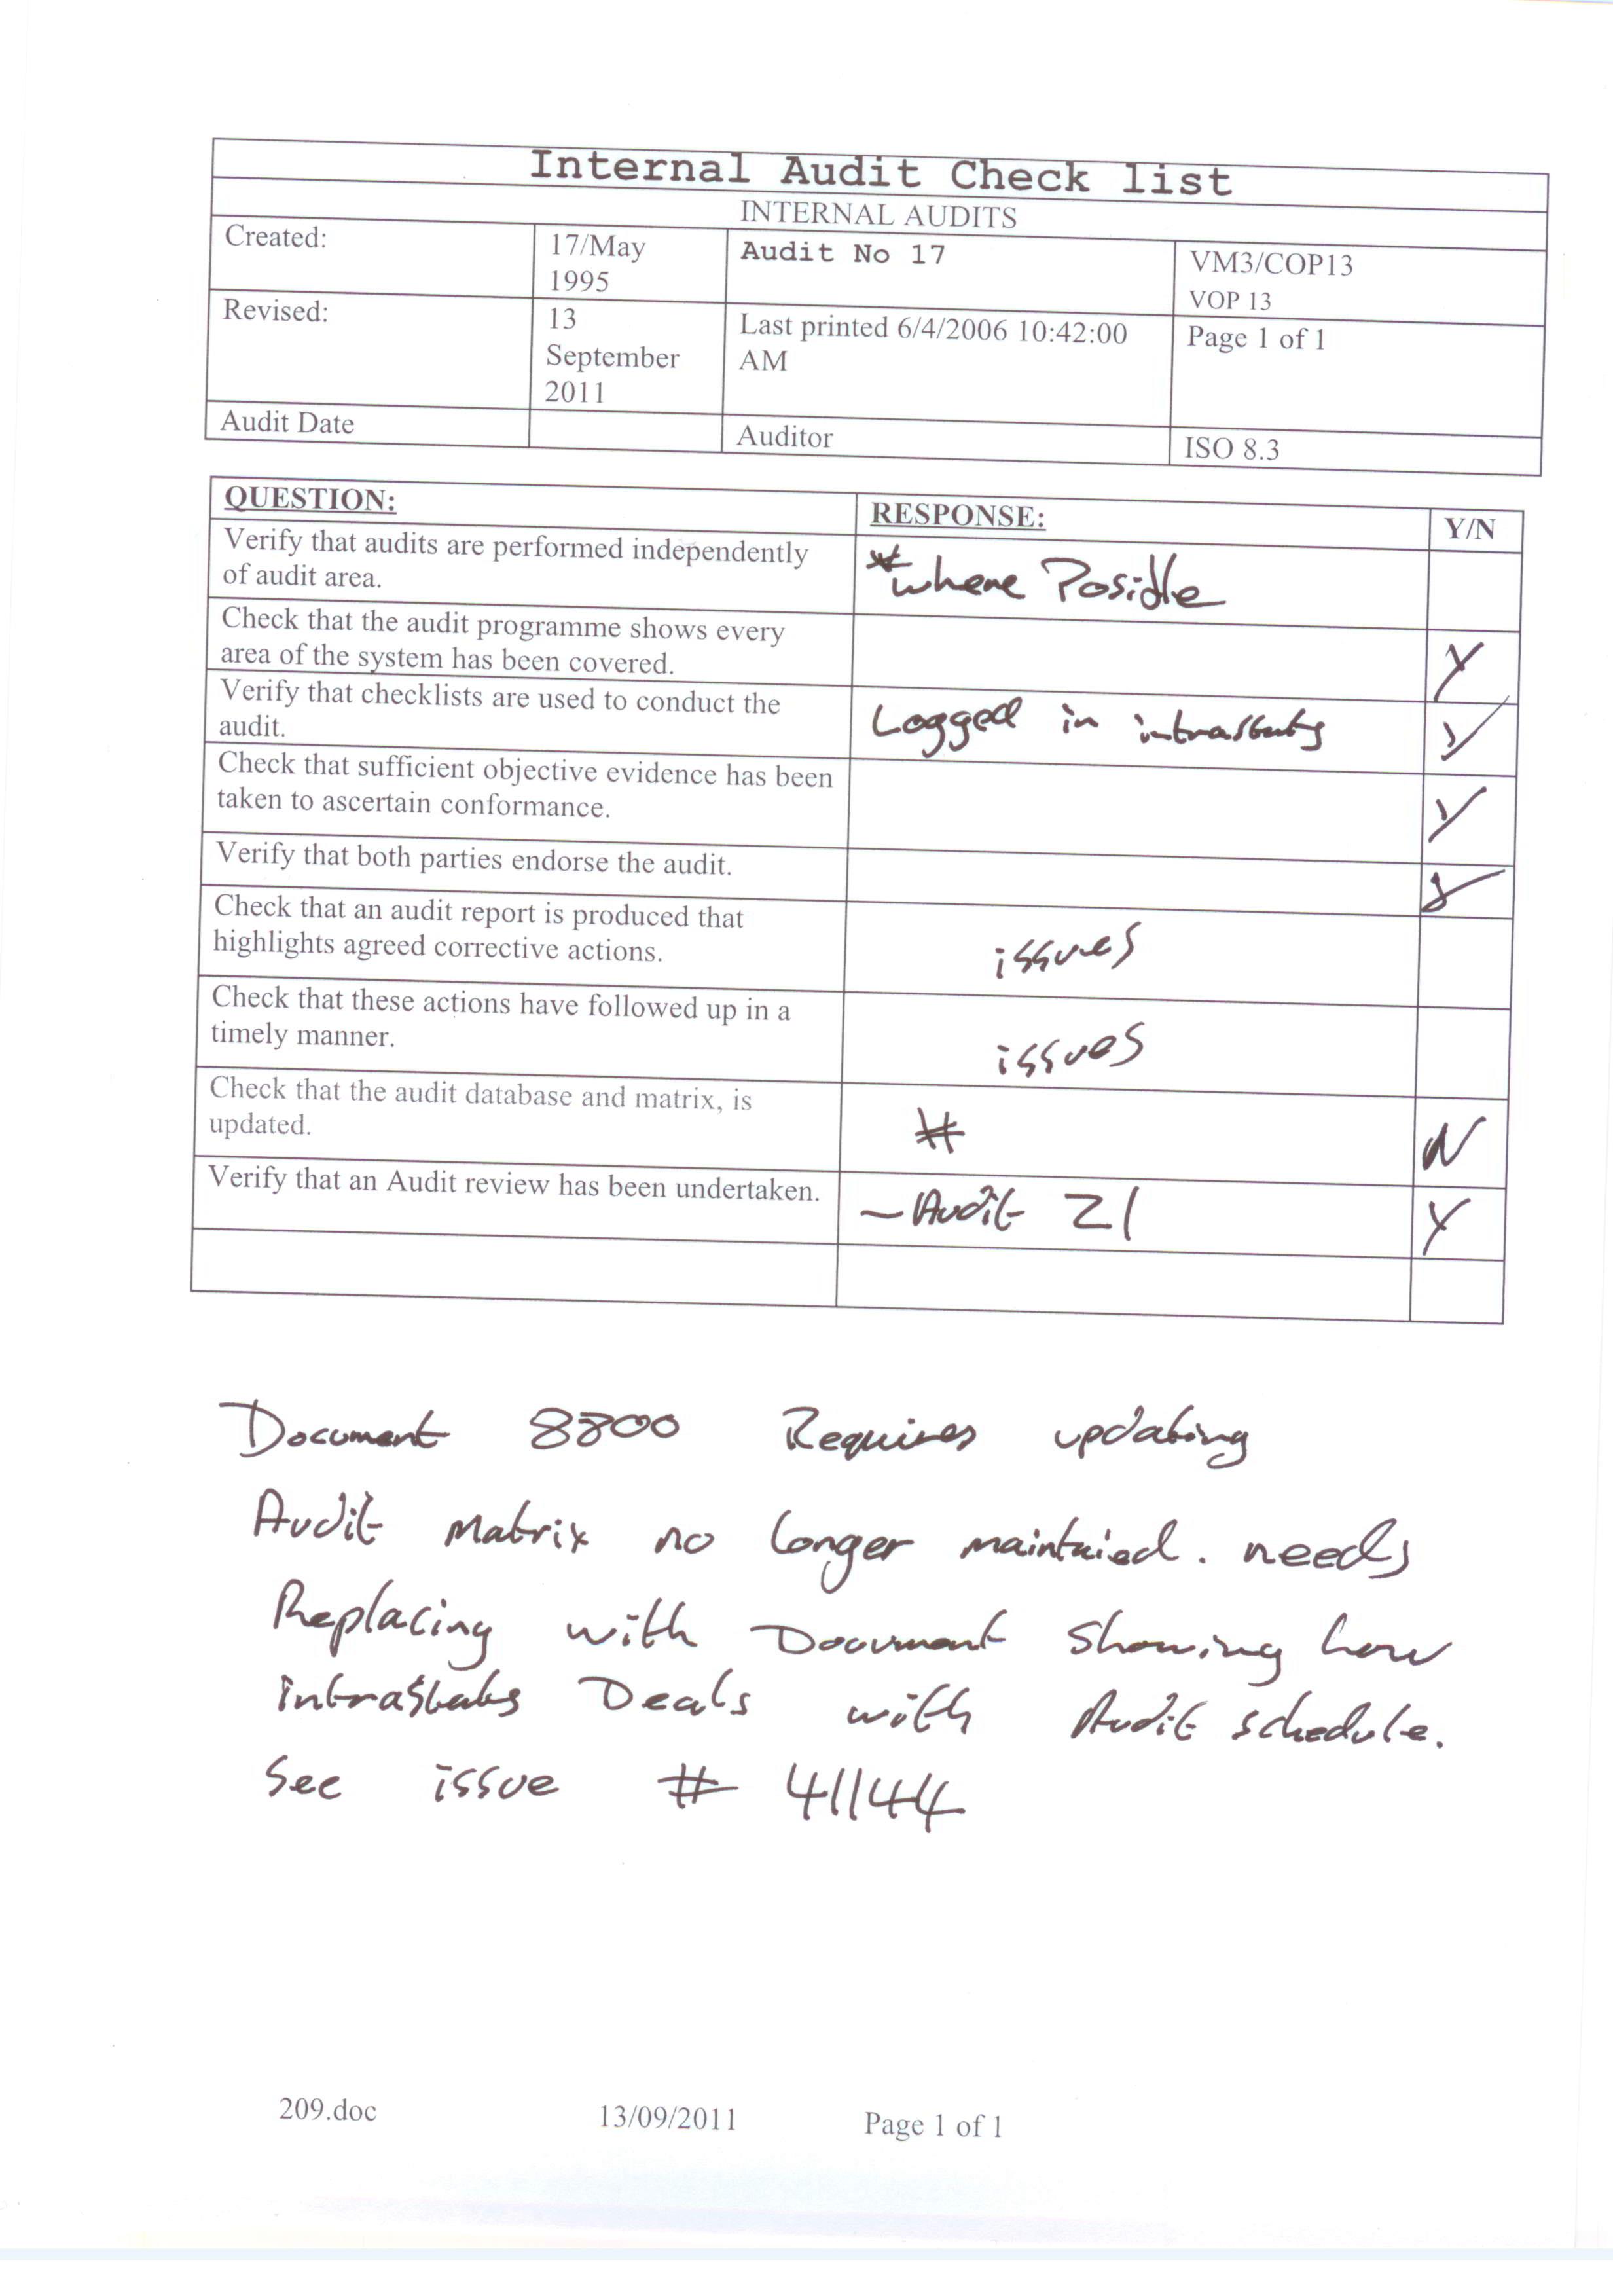 Internal Audit Check list
INTERNAL AUDITS
Created:
17/May
1995
Audit No 17
VM3/COP13
VOP 13
Revised:
13
September
2011
Last printed 6/4/2006 10:42:00
AM
Page 1 of 1
Audit Date
Auditor
ISO 8.3
QUESTION:
RESPONSE:
Y/N
Verify that audits are performed independently
of audit area.
*where Posible
Check that the audit programme shows every
area of the system has been covered.
Y
Verify that checklists are used to conduct the
audit.
Logged in intrastats
Y
Check that sufficient objective evidence has been
taken to ascertain conformance.
Y
Verify that both parties endorse the audit.
Check that an audit report is produced that
highlights agreed corrective actions.
issues
Check that these actions have followed up in a
timely manner.
issues
Check that the audit database and matrix, is
updated.
#
N
Verify that an Audit review has been undertaken.
- Audit 21
Y
Document 8800 Requires updating
Audit Matrix no longer maintaied. needs
Replacing with Document showing how
intrastats Deals with Audit schedule.
See issue # 41144
209.doc
13/09/2011
Page 1 of 1